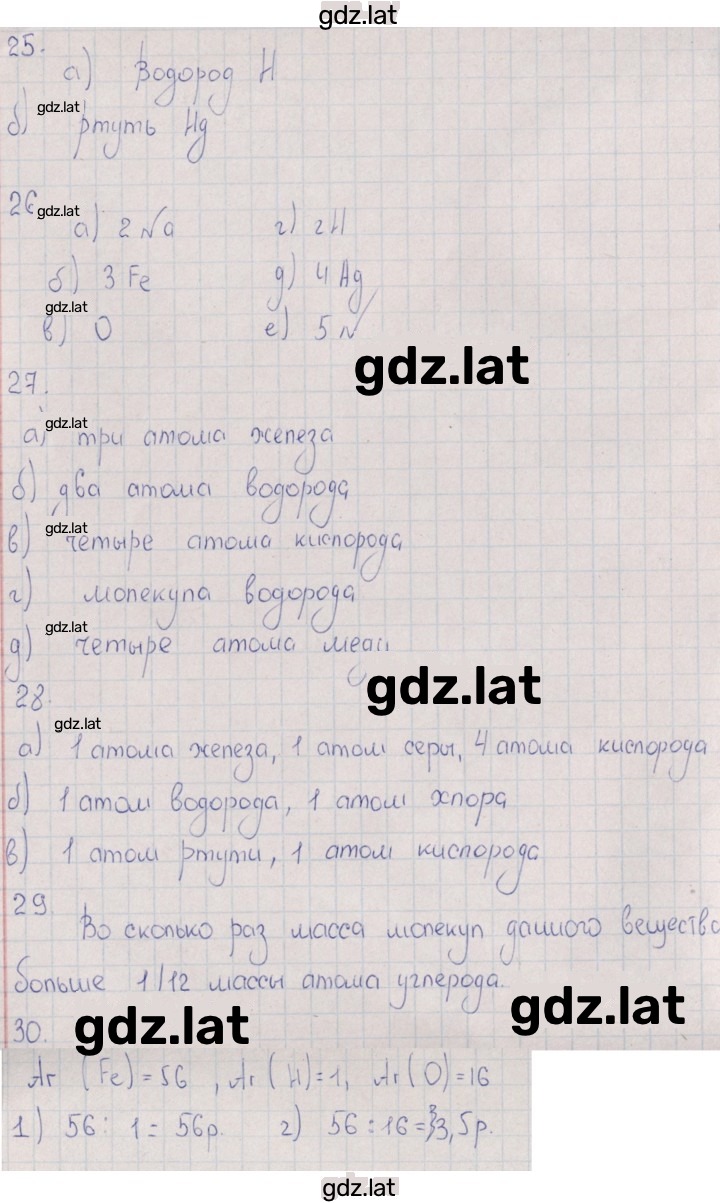 gdz.lat
25.
а) Водород H
gdz.lat
б) ртуть Hg
26 gdz.lat
а) 2 Na г) 2H
б) 3 Fe д) 4 Ag
gdz.lat
в) O е) 5 N
gdz.lat
27.
gdz.lat
а) три атома железа
б) два атома водорода
gdz.lat
в) четыре атома кислорода
г) молекула водорода
gdz.lat
д) четыре атома меди
gdz.lat
28.
gdz.lat
а) 1 атома железа, 1 атом серы, 4 атома кислорода
б) 1 атом водорода, 1 атом хлора
в) 1 атом ртути, 1 атом кислорода
29
Во сколько раз масса молекул данного вещества
больше 1/12 массы атома углерода.
gdz.lat
30. gdz.lat
Ar (Fe) = 56 , Ar (H) = 1, Ar (O) = 16
1) 56 : 1 = 56 р. 2) 56 : 16 = 3,5 р.
gdz.lat